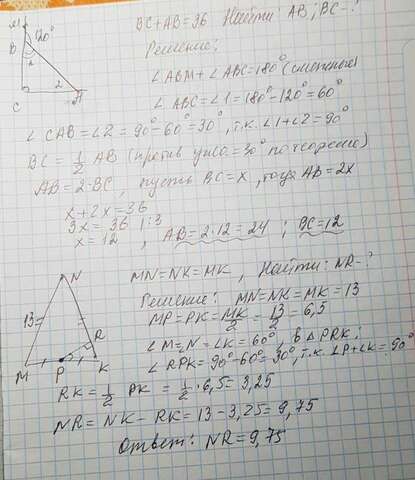 M
120°
B
1
2
C
A
BC+AB=36 Найти: AB; BC-?
Решение:
∠ABM+∠ABC=180° (смежные)
∠ABC=∠1=180°-120°=60°
∠CAB=∠2=90°-60°=30°, т.к. ∠1+∠2=90°
BC=1/2 AB (против угла=30° по теореме)
AB=2·BC, пусть BC=x, тогда AB=2x
x+2x=36
3x=36 |:3
x=12, AB=2·12=24; BC=12
N
13
R
M
P
K
MN=NK=MK, Найти: NR-?
Решение: MN=NK=MK=13
MP=PK=MK/2=13/2=6,5
∠M=N=∠K=60°, в △PRK:
∠RPK=90°-60°=30°, т.к. ∠P+∠K=90°
RK=1/2 PK=1/2·6,5=3,25
NR=NK-RK=13-3,25=9,75
Ответ: NR=9,75